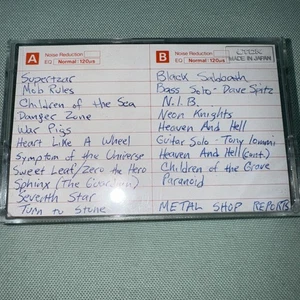 A
Noise Reduction
EQ Normal 120µs
Supertzar
Mob Rules
Children of the Sea
Danger Zone
War Pigs
Heart Like A Wheel
Symptom of the Universe
Sweet Leaf/Zero the Hero
Sphinx (The Guardian)
Seventh Star
Turn to Stone
B
Noise Reduction
EQ Normal 120µs
MADE IN JAPAN
Black Sabbath
Bass Solo - Dave Spitz
N.I.B.
Neon Knights
Heaven And Hell
Guitar Solo - Tony Iommi
Heaven And Hell (cont.)
Children of the Grave
Paranoid
METAL SHOP REPORTS